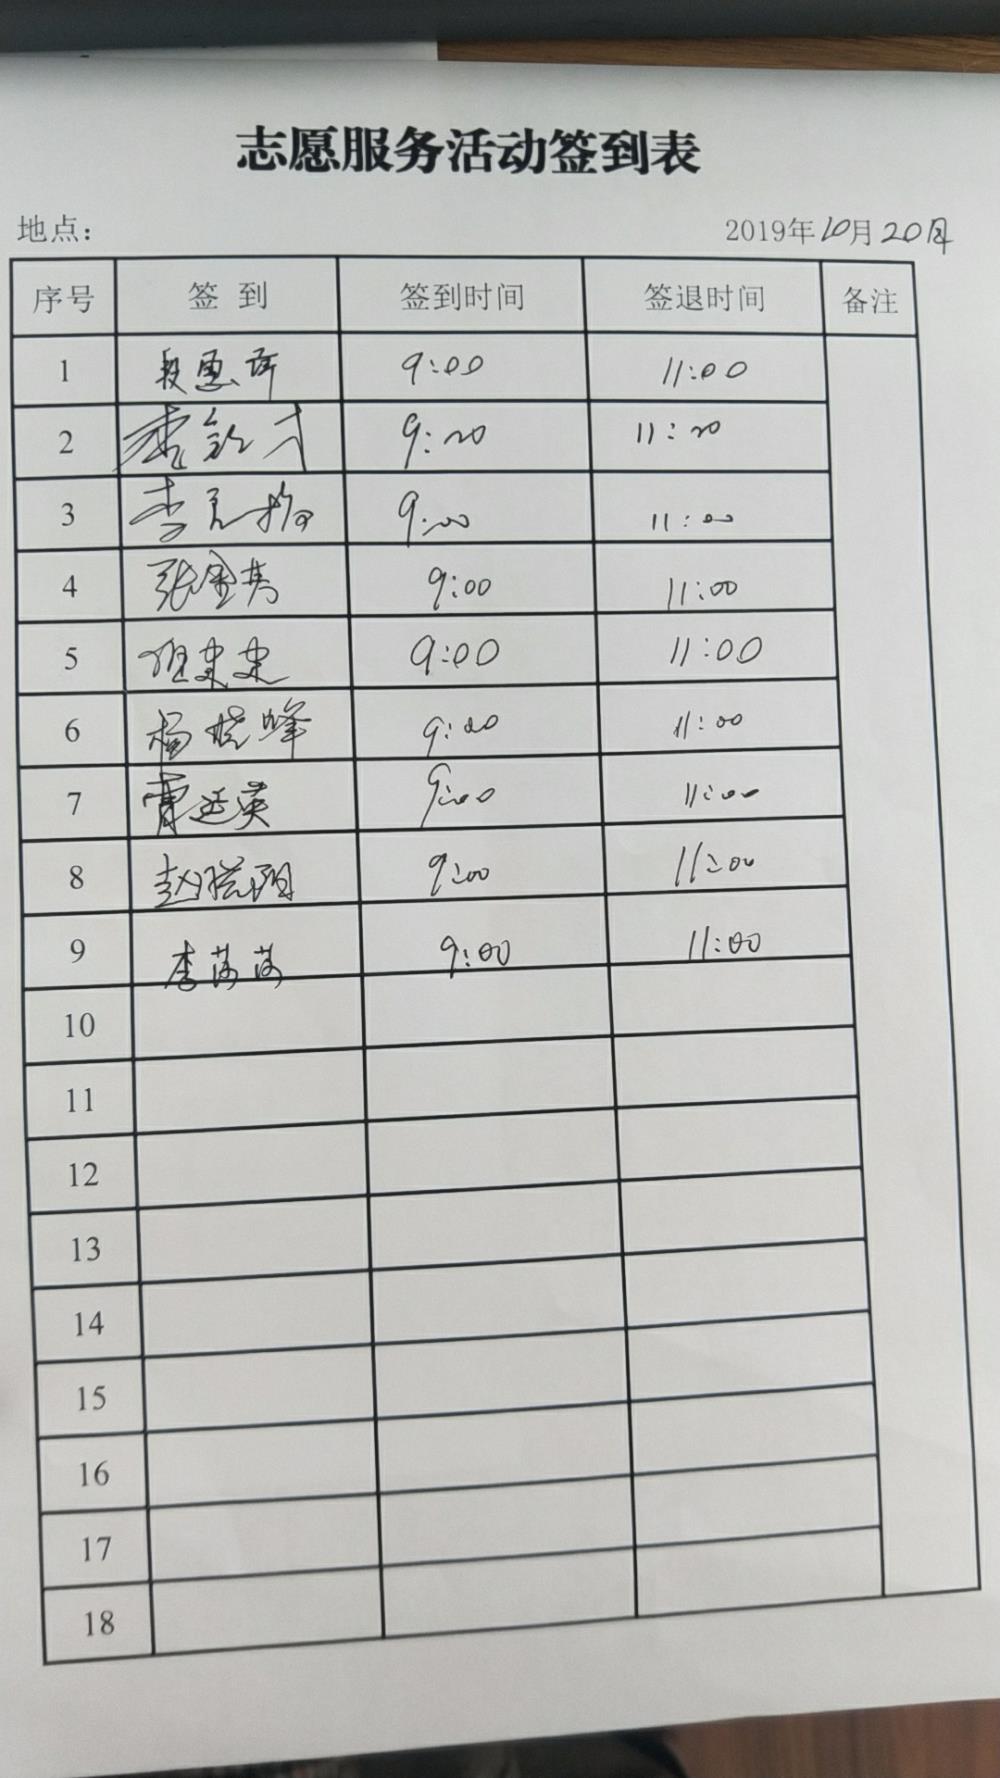 志愿服务活动签到表
地点： 2019年10月20日
序号 签到 签到时间 签退时间 备注
1 段惠 9:00 11:00
2 11:20
3 李 9:00 11:00
4 张金 9:00 11:00
5 9:00 11:00
6 杨晓峰 9:00 11:00
7 曹延英 9:00 11:00
8 赵 阳 9:00 11:00
9 李 9:00 11:00
10
11
12
13
14
15
16
17
18